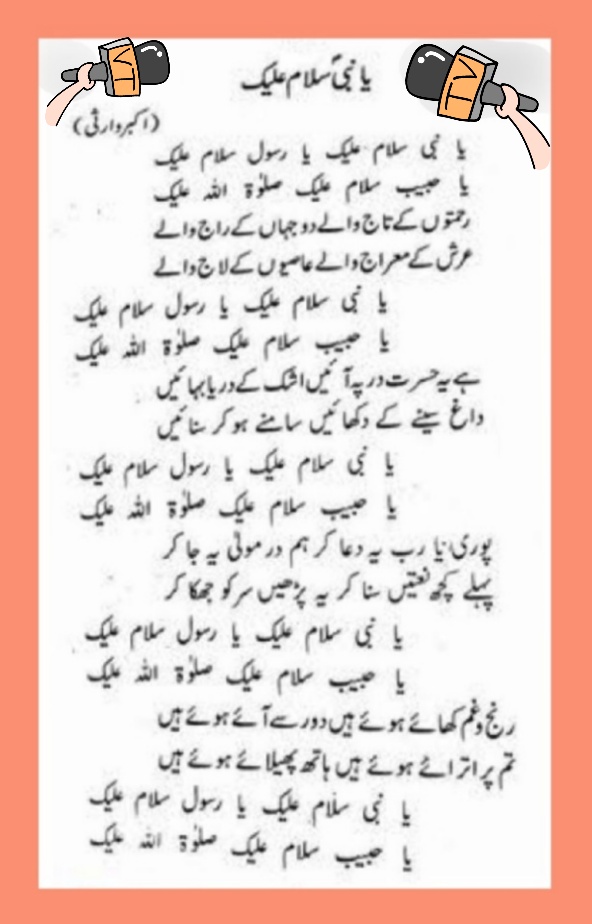 یا نبیؐ سلام علیک
(اکبر وارثی)
یا نبی سلام علیک یا رسول سلام علیک
یا حبیب سلام علیک صلوٰۃ اللہ علیک
رحمتوں کے تاج والے دو جہاں کے راج والے
عرش کے معراج والے عاصیوں کے لاج والے
یا نبی سلام علیک یا رسول سلام علیک
یا حبیب سلام علیک صلوٰۃ اللہ علیک
ہے یہ حسرت در پہ آئیں اشک کے دریا بہائیں
داغ سینے کے دکھائیں سامنے ہو کر سنائیں
یا نبی سلام علیک یا رسول سلام علیک
یا حبیب سلام علیک صلوٰۃ اللہ علیک
پوری یا رب یہ دعا کر ہم در مولیٰ پہ جا کر
پہلے کچھ نعتیں سنا کر یہ پڑھیں سر کو جھکا کر
یا نبی سلام علیک یا رسول سلام علیک
یا حبیب سلام علیک صلوٰۃ اللہ علیک
رنج و غم کھائے ہوئے ہیں دور سے آئے ہوئے ہیں
تم پر اترائے ہوئے ہیں ہاتھ پھیلائے ہوئے ہیں
یا نبی سلام علیک یا رسول سلام علیک
یا حبیب سلام علیک صلوٰۃ اللہ علیک